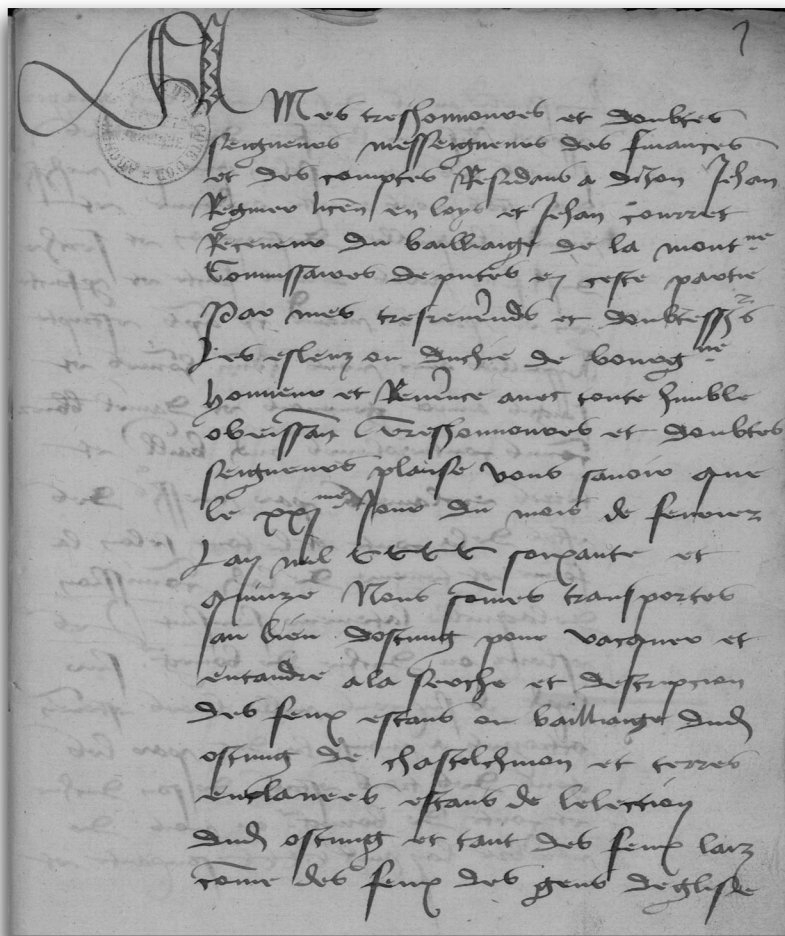 A
Mes treshonnores et doubtes
seigneurs messeigneurs des finances
et des comptes Residans a diion Jehan
Regnier licen en loys et Jehan Courret
Receveur du bailliaige de la mont ne
Commissaires deputes en ceste partie
Par mes tresreverends et doubtes srs
Les esleuz ou duchie de bourg ne
honneur et Reverence avec toute humble
obeissan Treshonnores et doubtes
seigneurs plaise vous savoir que
le xxj me jour du mois de fevrier
Lan mil CCCC soixante et
quinze Nous somes transportes
au lieu dostung pour vacquer et
entandre a la serche et descripcion
des feux estans ou bailliaige dud
ostung de chastelchinon et terres
enclavees estans de lelection
dud ostung et tant des feux laiz
come des feux des gens deglise